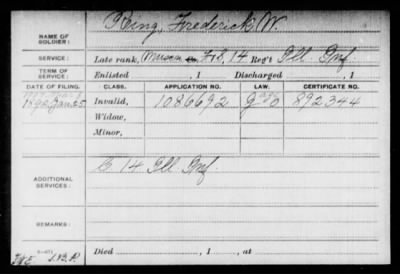 NAME OF SOLDIER: King, Frederick W.
SERVICE: Late rank, F&S, 14 Reg't Ill. Inf.
TERM OF SERVICE: Enlisted , 1 Discharged , 1
DATE OF FILING. CLASS. APPLICATION NO. LAW. CERTIFICATE NO.
1892 Jan 25 Invalid, 1086692 892344
Widow,
Minor,
ADDITIONAL SERVICES: 14 Ill Inf.
REMARKS:
Died , 1 , at